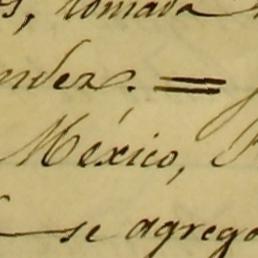 s, tomada
ndez. =
México,
se agrego